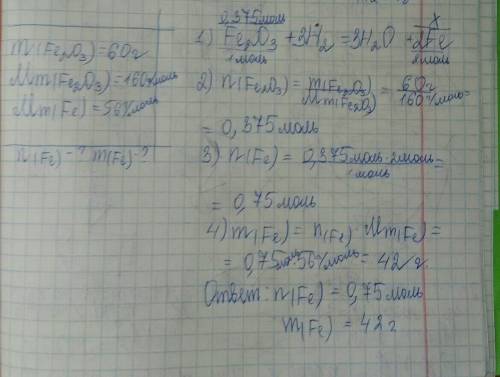 m(Fe₂O₃)=60г
Mm(Fe₂O₃)=160г/моль
Mm(Fe)=56г/моль
n(Fe)-? m(Fe)-?
0,375моль x
1) Fe₂O₃ + 3H₂ = 3H₂O + 2Fe
1моль 2моль
2) n(Fe₂O₃) = m(Fe₂O₃)/Mm(Fe₂O₃) = 60г/160г/моль =
= 0,375моль
3) n(Fe) = 0,375моль·2моль/1моль =
= 0,75моль
4) m(Fe) = n(Fe)·Mm(Fe) =
= 0,75моль·56г/моль = 42г.
Ответ: n(Fe) = 0,75моль
m(Fe) = 42г